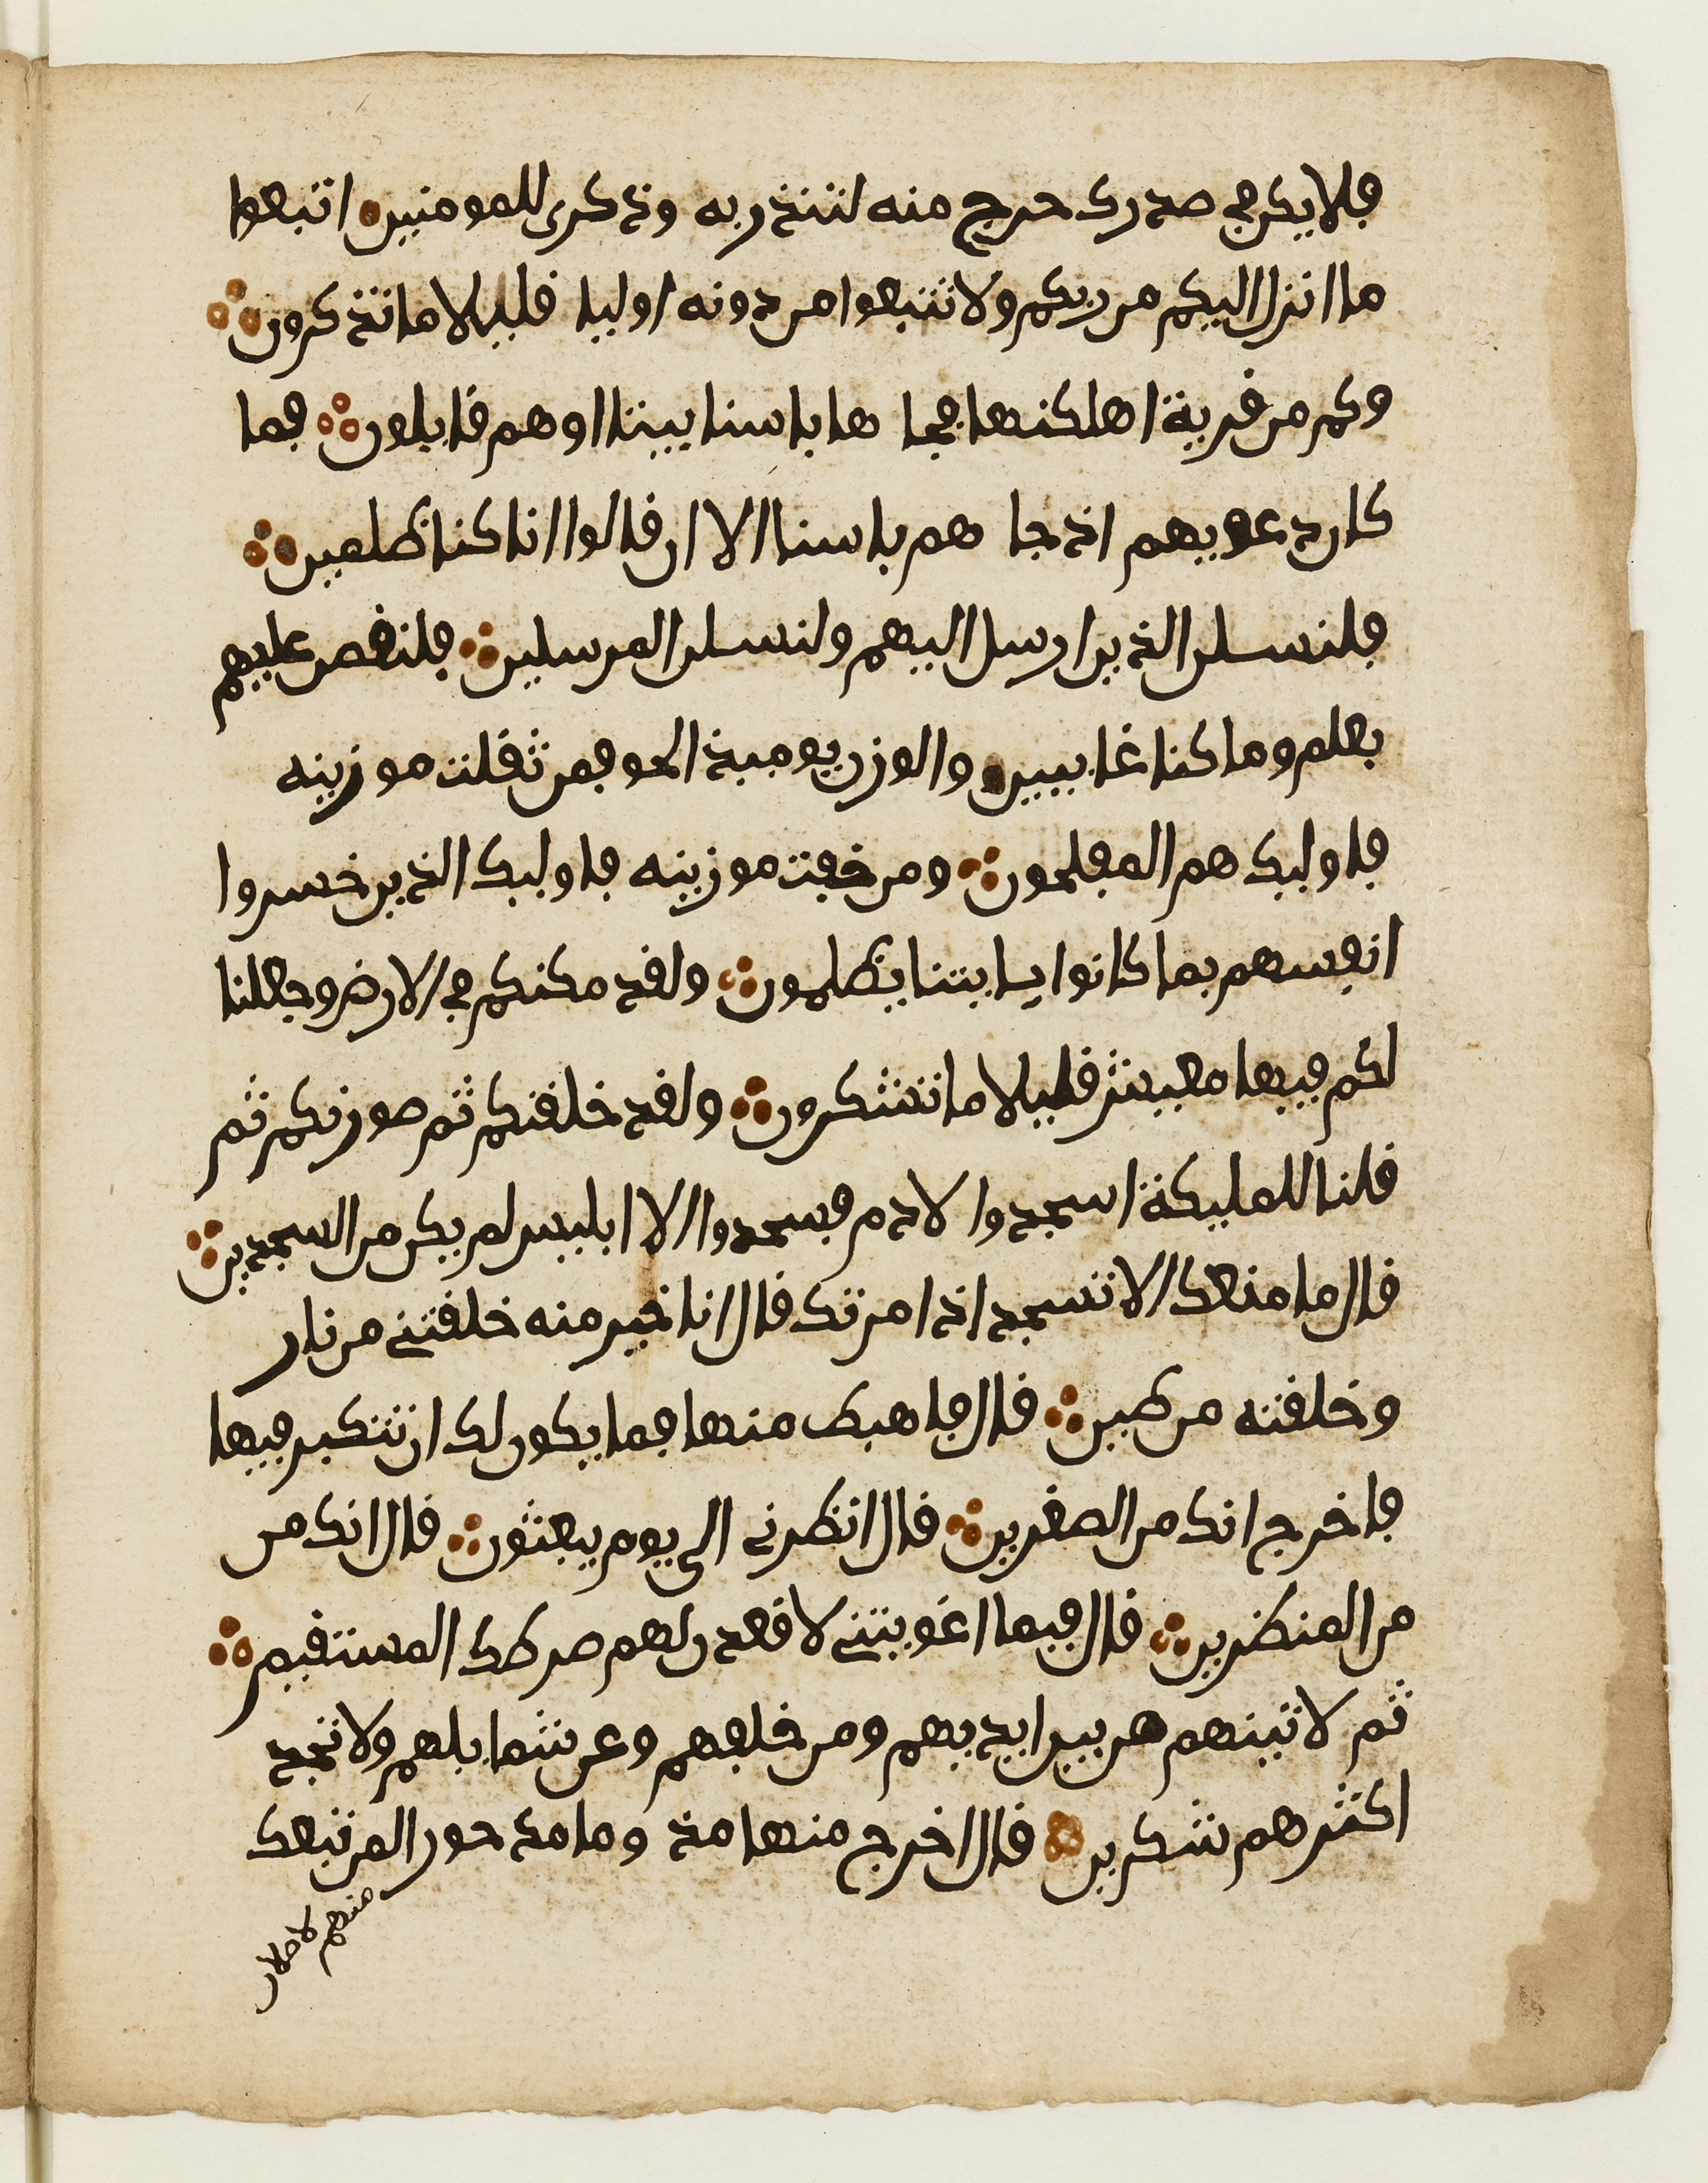 فلا يكن في صدرك حرج منه لتنذر به وذكرى للمومنين اتبعوا
ما انزل اليكم من ربكم ولا تتبعوا من دونه اوليا قليلا ما تذكرون
وكم من قرية اهلكنها فجا ها باسنا بيتنا او هم قايلون فما
كان دعويهم اذ جا هم باسنا الا ان قالوا انا كنا ظلمين
فلنسلن الذين ارسل اليهم ولنسلن المرسلين فلنقصن عليهم
بعلم وما كنا غايبين والوزن يوميذ الحق فمن ثقلت موزينه
فاوليك هم المفلحون ومن خفت موزينه فاوليك الذين خسروا
انفسهم بما كانوا بايتنا يظلمون ولقد مكنكم في الارض وجعلنا
لكم فيها معيش قليلا ما تشكرون ولقد خلقنكم ثم صورنكم ثم
قلنا للمليكة اسجدوا لادم فسجدوا الا ابليس لم يكن من السجدين
قال ما منعك الا تسجد اذ امرتك قال انا خير منه خلقتني من نار
وخلقته من طين قال فاهبط منها فما يكون لك ان تتكبر فيها
فاخرج انك من الصغرين قال انظرني الى يوم يبعثون قال انك من
من المنظرين قال فبما اغويتني لاقعدن لهم صرطك المستقيم
ثم لاتينهم من بين ايديهم ومن خلفهم وعن شمايلهم ولا تجد
اكثرهم شكرين قال اخرج منها مذ وما مد حورا لمن تبعك
منهم لاملان